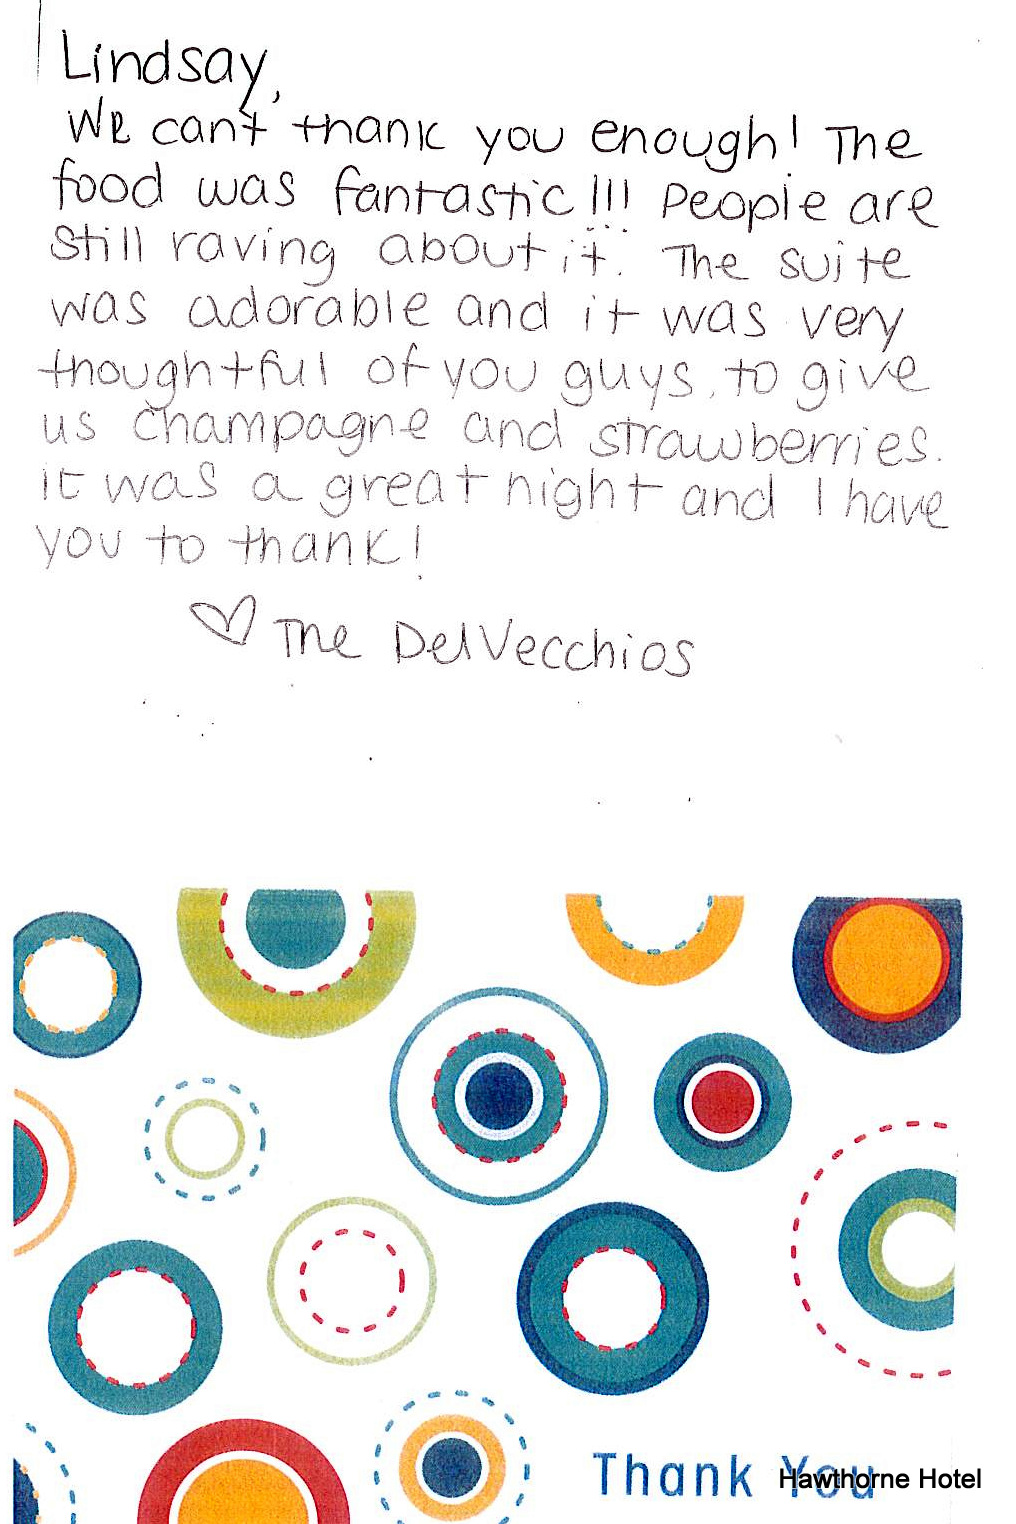 Lindsay,
We can't thank you enough! The
food was fantastic!!! People are
still raving about it. The suite
was adorable and it was very
thoughtful of you guys, to give
us champagne and strawberries.
it was a great night and I have
you to thank!
♡ The DelVecchios
Thank You
Hawthorne Hotel